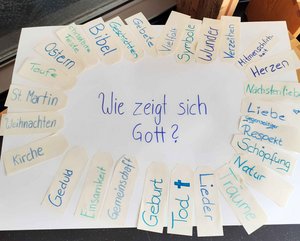 Wie zeigt sich
Gott?
Bibel
Geschichten
Gebete
Vielfalt
Symbole
Wunder
Verzeihen
Herzen
Nächstenliebe
Liebe
gegenseitiger
Respekt
Schöpfung
Natur
Träume
Lieder
Tod
Geburt
Gemeinschaft
Einsamkeit
Geduld
Kirche
Weihnachten
St. Martin
Taufe
Ostern